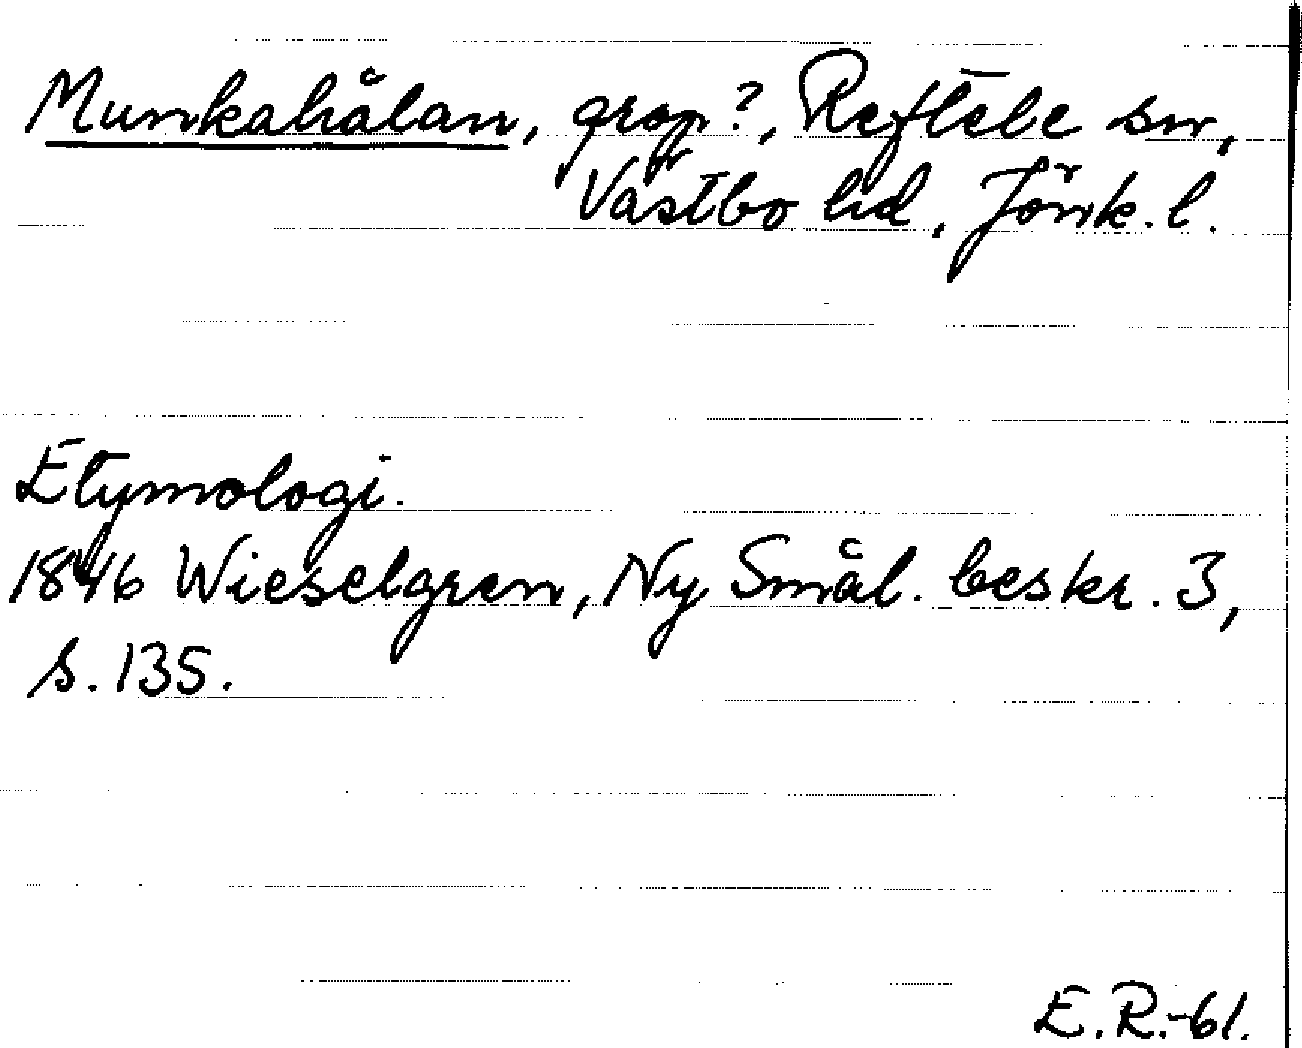 Munkahålan, grop?, Reftele sn,
Västbo hd, Jönk. l.
Etymologi.
1846 Wieselgren, Ny Smål. beskr. 3,
s. 135.
E.R.-61.